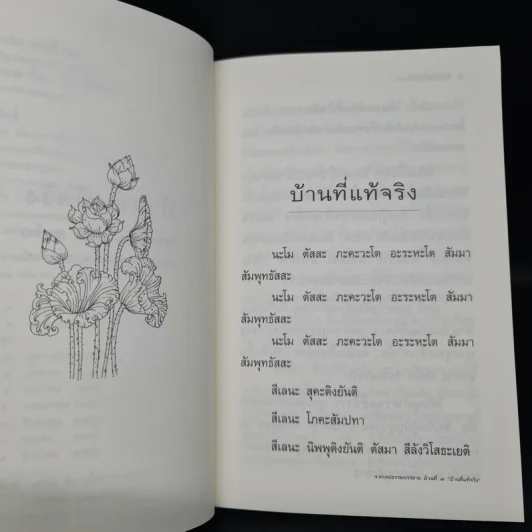 บ้านที่แท้จริง
นะโม ตัสสะ ภะคะวะโต อะระหะโต สัมมา
สัมพุทธัสสะ
นะโม ตัสสะ ภะคะวะโต อะระหะโต สัมมา
สัมพุทธัสสะ
นะโม ตัสสะ ภะคะวะโต อะระหะโต สัมมา
สัมพุทธัสสะ
สีเลนะ สุคะติงยันติ
สีเลนะ โภคะสัมปทา
สีเลนะ นิพพุติงยันติ ตัสมา สีลังวิโสธะเยติ
"บ้านที่แท้จริง"